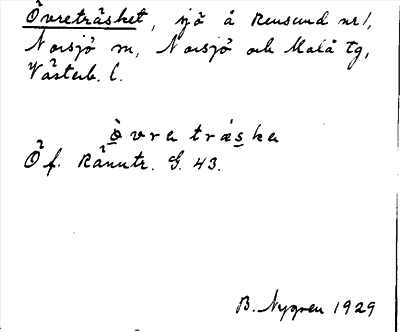 Övreträsket, sjö å Rensund nr 1,
Norsjö sn, Norsjö och Malå tg,
Västerb. l.
òvre tràska
Öf. Rännutr. G. 43.
B. Nygren 1929